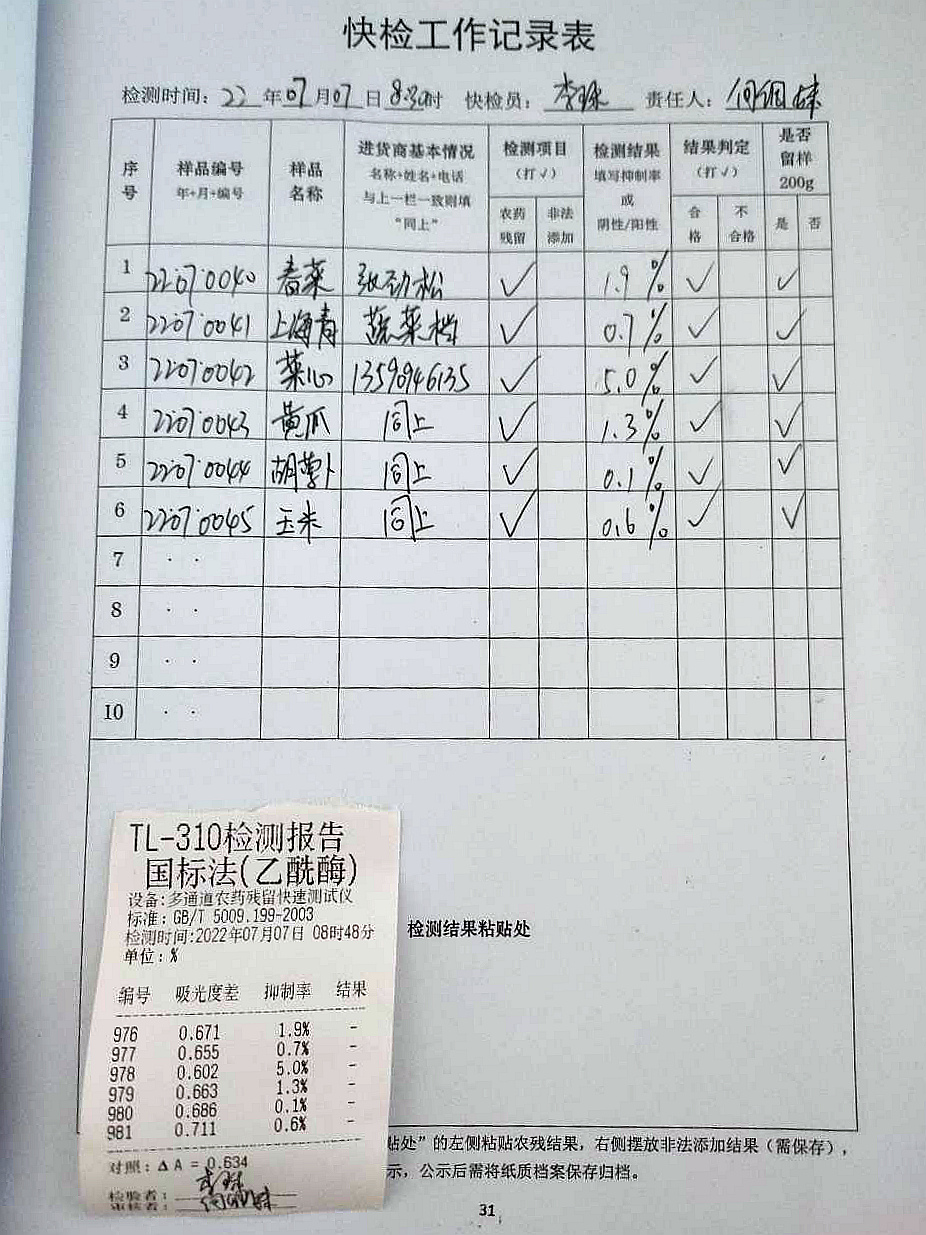 快检工作记录表
检测时间: 22 年 07 月 07 日 8:30 时 快检员: 李球 责任人:
序号 样品编号 年+月+编号 样品名称 进货商基本情况 名称+姓名+电话 与上一栏一致则填 “同上” 检测项目 (打√) 农药残留 非法添加 检测结果 填写抑制率 或 阴性/阳性 结果判定 (打√) 合格 不合格 是否留样 200g 是 否
1 22·07·0040 春菜 张劲松 √ 1.9% √ √
2 22·07·0041 上海青 蔬菜档 √ 0.7% √ √
3 22·07·0042 菜心 13590946135 √ 5.0% √ √
4 22·07·0043 黄瓜 同上 √ 1.3% √ √
5 22·07·0044 胡萝卜 同上 √ 0.1% √ √
6 22·07·0045 玉米 同上 √ 0.6% √ √
7 · ·
8 · ·
9 · ·
10 · ·
TL-310检测报告
国标法(乙酰酶)
设备:多通道农药残留快速测试仪
标准: GB/T 5009.199-2003
检测时间:2022年07月07日 08时48分
单位: %
编号 吸光度差 抑制率 结果
976 0.671 1.9% -
977 0.655 0.7% -
978 0.602 5.0% -
979 0.663 1.3% -
980 0.686 0.1% -
981 0.711 0.6% -
对照: Δ A = 0.634
检验者: 李球
审核者:
检测结果粘贴处
贴处”的左侧粘贴农残结果，右侧摆放非法添加结果（需保存），
示，公示后需将纸质档案保存归档。
31